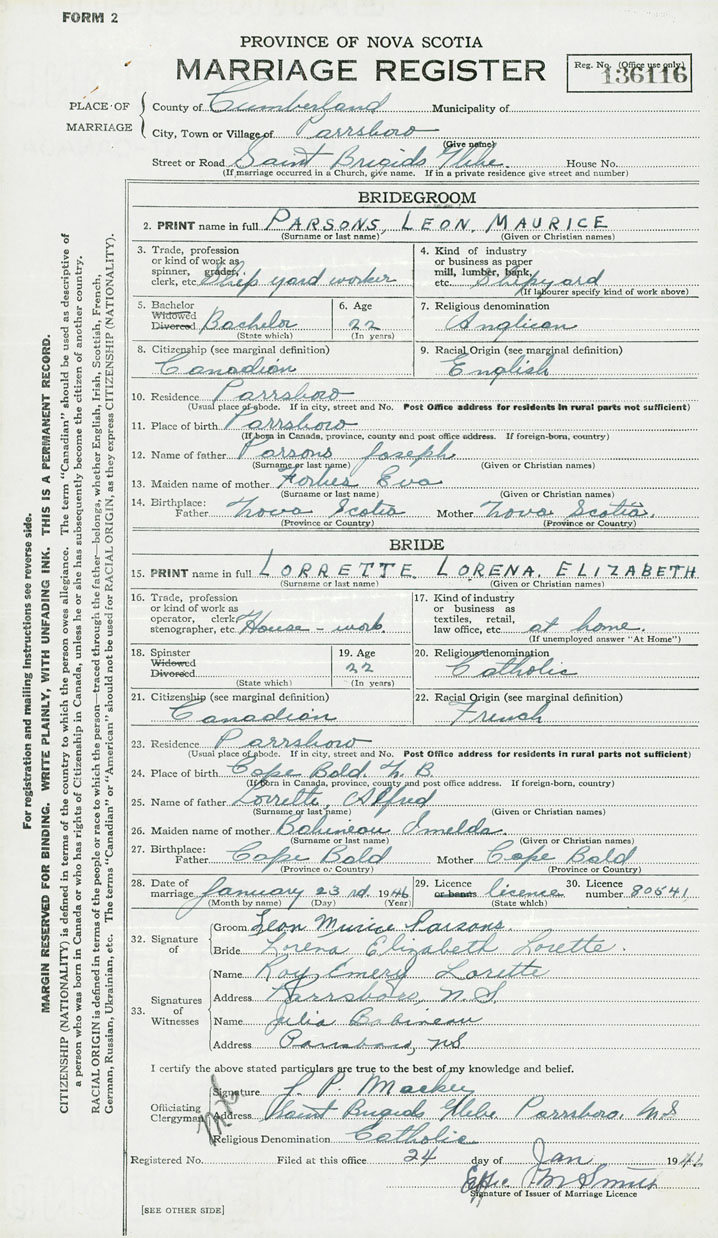 FORM 2
PROVINCE OF NOVA SCOTIA
MARRIAGE REGISTER
Reg. No. (Office use only)
136116
PLACE OF MARRIAGE
County of Cumberland Municipality of
City, Town or Village of Parrsboro
(Give name)
Street or Road Saint Brigids Glebe. House No.
(If marriage occurred in a Church, give name. If in a private residence give street and number)
BRIDEGROOM
2. PRINT name in full PARSONS, LEON, MAURICE
(Surname or last name) (Given or Christian names)
3. Trade, profession or kind of work as spinner, grader, clerk, etc. Ship yard worker
4. Kind of industry or business as paper mill, lumber, bank, etc. Shipyard
(If labourer specify kind of work above)
5. Bachelor Widowed Divorced Bachelor
(State which)
6. Age 22
(In years)
7. Religious denomination Anglican
8. Citizenship (see marginal definition) Canadian
9. Racial Origin (see marginal definition) English
10. Residence Parrsboro
(Usual place of abode. If in city, street and No. Post Office address for residents in rural parts not sufficient)
11. Place of birth Parrsboro
(If born in Canada, province, county and post office address. If foreign-born, country)
12. Name of father Parsons Joseph
(Surname or last name) (Given or Christian names)
13. Maiden name of mother Forbes Eva
(Surname or last name) (Given or Christian names)
14. Birthplace: Father Nova Scotia Mother Nova Scotia.
(Province or Country) (Province or Country)
BRIDE
15. PRINT name in full LORRETTE LORENA. ELIZABETH
(Surname or last name) (Given or Christian names)
16. Trade, profession or kind of work as operator, clerk, stenographer, etc. House - work.
17. Kind of industry or business as textiles, retail, law office, etc. at home.
(If unemployed answer "At Home")
18. Spinster Widowed Divorced
(State which)
19. Age 22
(In years)
20. Religious denomination Catholic
21. Citizenship (see marginal definition) Canadian
22. Racial Origin (see marginal definition) French
23. Residence Parrsboro
(Usual place of abode. If in city, street and No. Post Office address for residents in rural parts not sufficient)
24. Place of birth Cape Bald. N. B.
(If born in Canada, province, county and post office address. If foreign-born, country)
25. Name of father Lorrette, Alfred
(Surname or last name) (Given or Christian names)
26. Maiden name of mother Babineau Imelda.
(Surname or last name) (Given or Christian names)
27. Birthplace: Father Cape Bald Mother Cape Bald
(Province or Country) (Province or Country)
28. Date of marriage January 23rd. 1946
(Month by name) (Day) (Year)
29. Licence or banns licence
(State which)
30. Licence number 80541
32. Signature of
Groom Leon Murice Parsons.
Bride Lorena Elizabeth Lorette.
33. Signatures of Witnesses
Name Roy Emery Lorette
Address Parrsboro, N.S.
Name Julia Babineau
Address Parrsboro, N.S.
I certify the above stated particulars are true to the best of my knowledge and belief.
Officiating Clergyman
Signature J. P. Mackey
Address Saint Brigids Glebe Parrsboro. N.S
Religious Denomination Catholic
Registered No. Filed at this office 24 day of Jan 1946
Signature of Issuer of Marriage Licence
[SEE OTHER SIDE]
For registration and mailing instructions see reverse side.
MARGIN RESERVED FOR BINDING. WRITE PLAINLY, WITH UNFADING INK. THIS IS A PERMANENT RECORD.
CITIZENSHIP (NATIONALITY) is defined in terms of the country to which the person owes allegiance. The term "Canadian" should be used as descriptive of
a person who was born in Canada or who has rights of Citizenship in Canada, unless he or she has subsequently become the citizen of another country.
RACIAL ORIGIN is defined in terms of the people or race to which the person—traced through the father—belongs, whether English, Irish, Scottish, French,
German, Russian, Ukrainian, etc. The terms "Canadian" or "American" should not be used for RACIAL ORIGIN, as they express CITIZENSHIP (NATIONALITY).